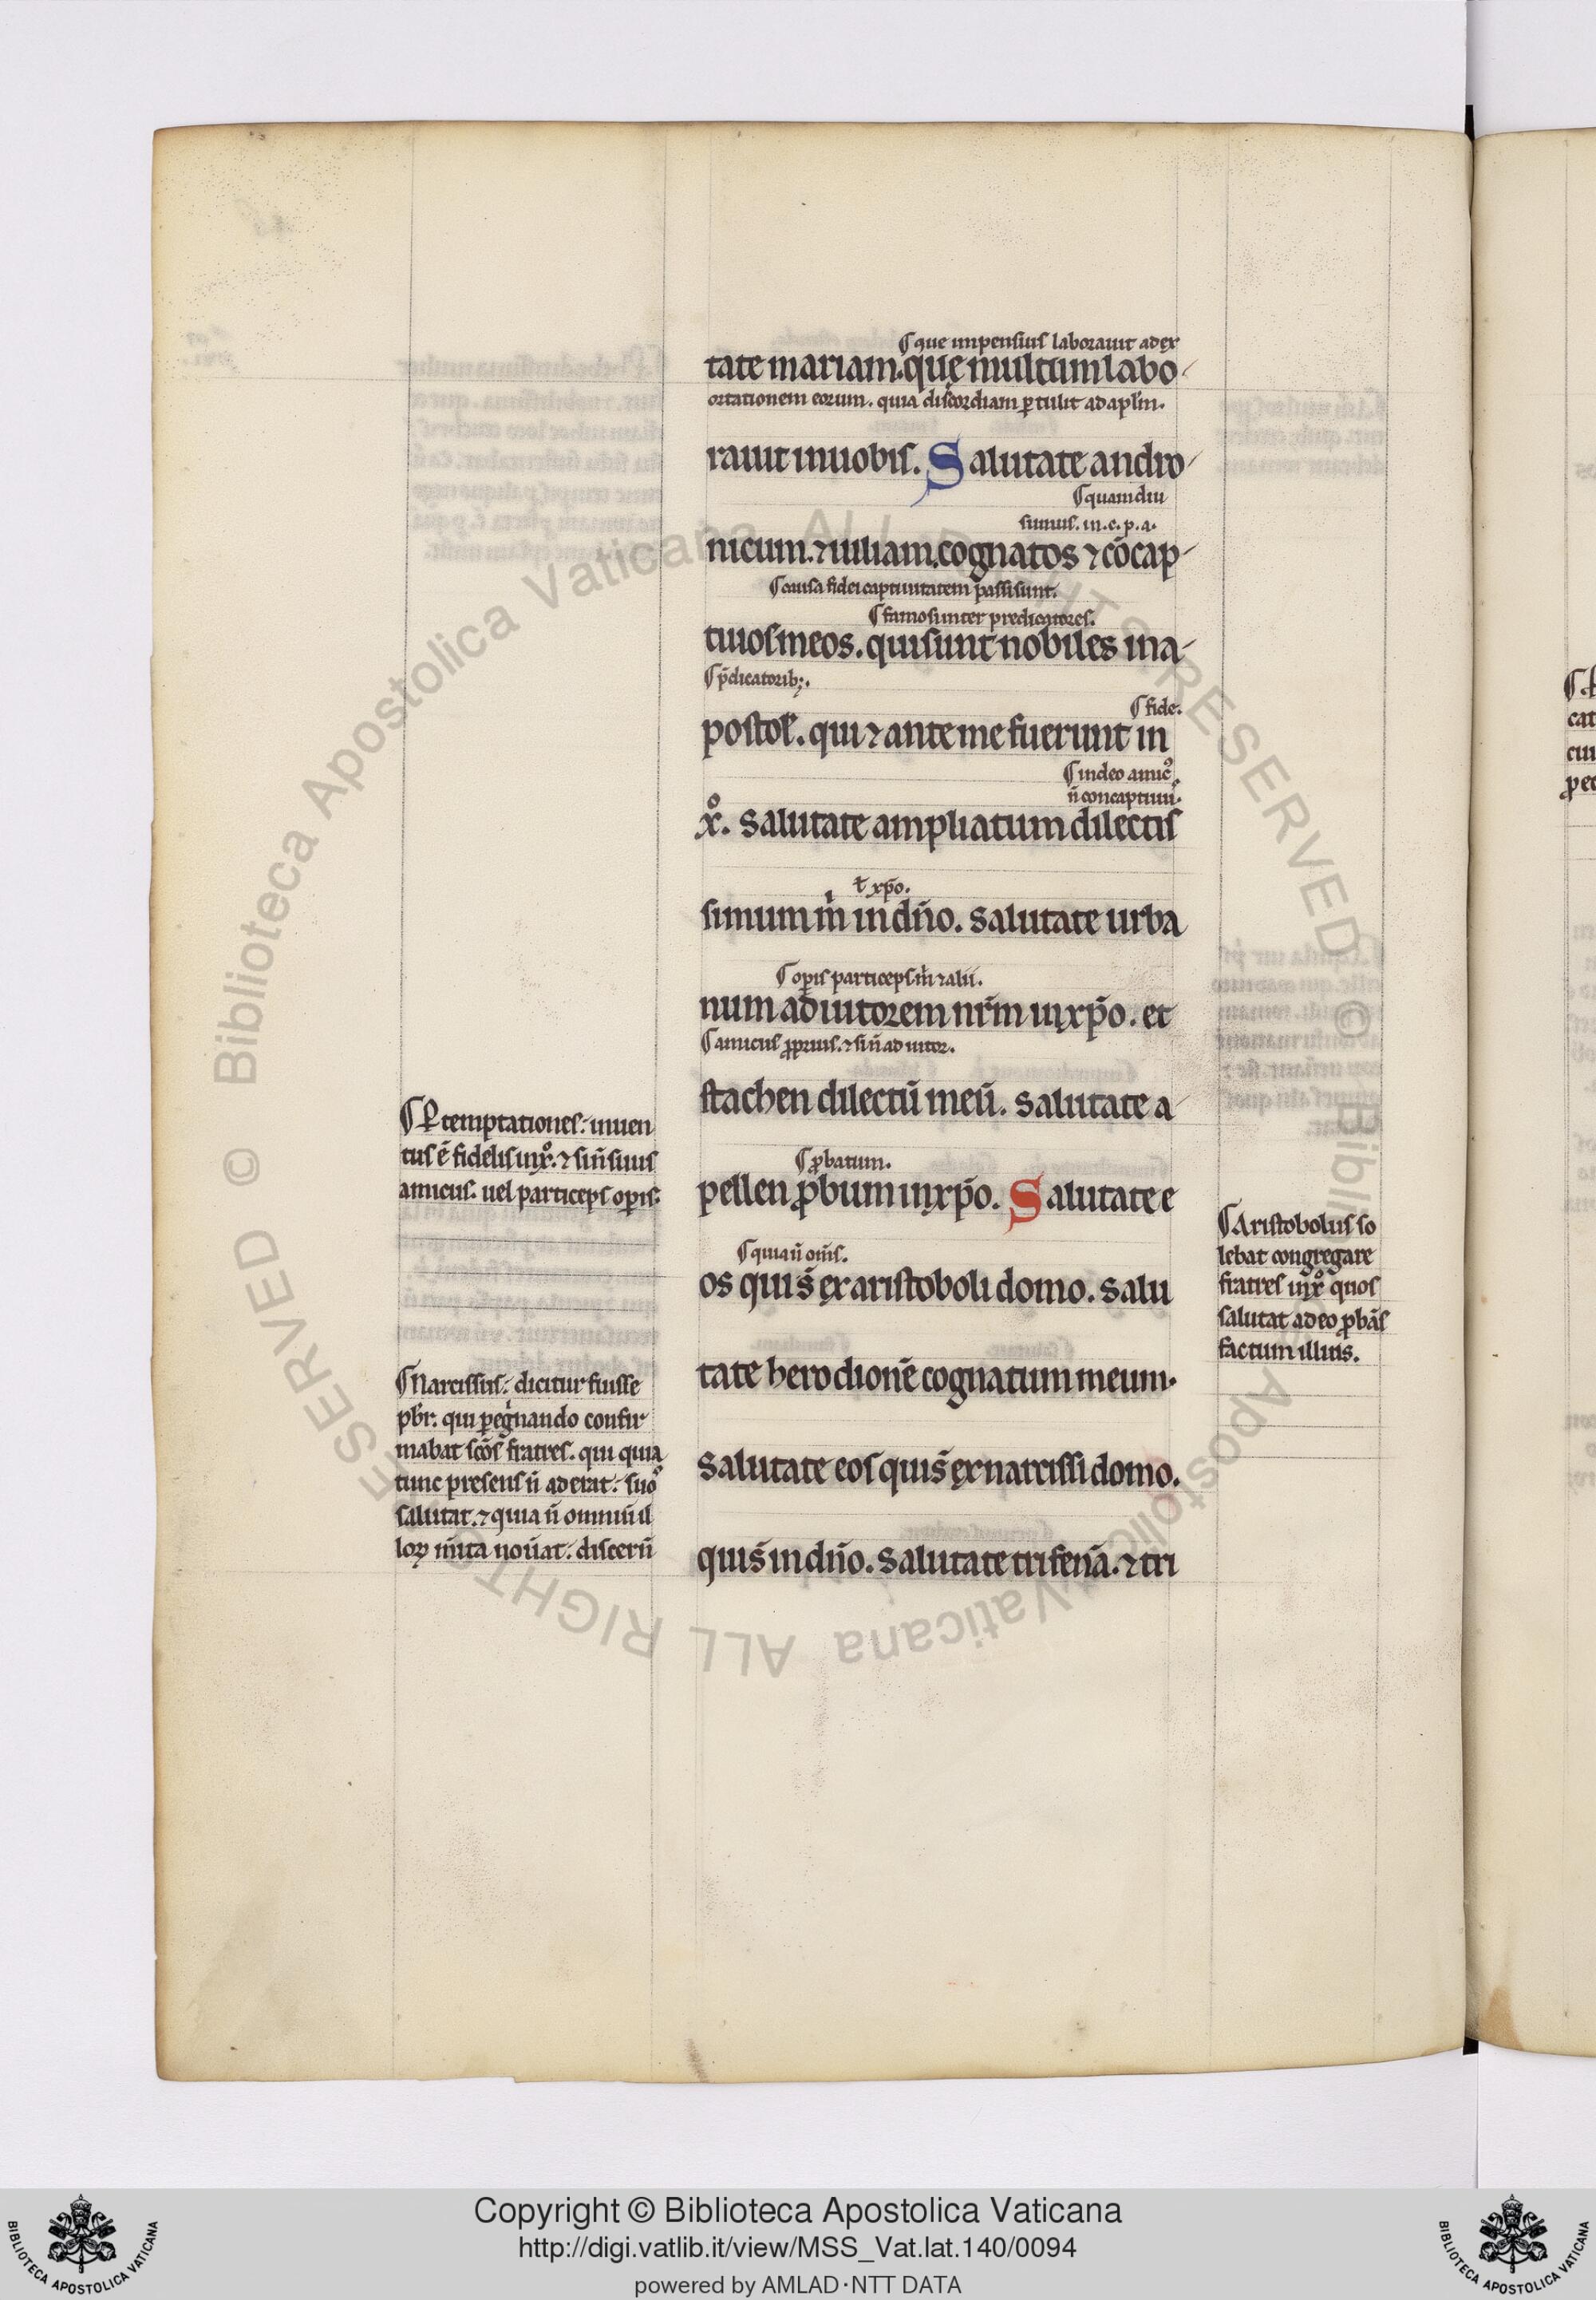 ¶ que impensius laborauit ad ex
tate mariam. que multum labo-
ortationem eorum. quia discordiam ꝑtulit ad apl̅m.
rauit in uobis. Salutate andro-
¶ quamdiu
sumus. in. c. p. a.
nicum. ⁊ iuliam. cognatos ⁊ cōcap-
¶ causa fidei captiuitatem passi sunt.
¶ famosi inter predicatores.
tiuos meos. qui sunt nobiles in a-
¶ p̅dicatorib;.
¶ fide.
postol'. qui ⁊ ante me fuerunt in
¶ in deo amicꝰ
n̅ concaptiuꝰ.
xͦ. Salutate ampliatum dilectis
ł xp̅o.
simum m̍ in dn̅o. Salutate urba
¶ oꝑis particeps m̍ ⁊ alii.
num adiutorem nr̅m in xp̅o. et
¶ amicus ꝓprius. ⁊ si n̅ adiutor.
stachen dilectū meū. Salutate a
¶ ꝓbatum.
pellen ꝓbum in xp̅o. Salutate e
¶ quia n̅ om̅s.
os qui s̅ ex aristoboli domo. Salu
tate herodionē cognatum meum.
Salutate eos qui s̅ ex narcissi domo.
qui s̅ in dn̅o. Salutate trifenā. ⁊ tri
¶ Ꝑ temptationes. inuen
tus ē fidelis in xͦ. ⁊ si n̅ suus
amicus. uel particeps oꝑis.
¶ Narcissus. dicitur fuisse
pb̅r. qui ꝑegͥnando confir
mabat sc̅os fratres. qui quia
tunc presens n̅ aderat. suoꝰ
salutat. ⁊ quia n̅ omniū il
loꝝ m̅ita nou̅at. discern̅
¶ Aristobolus so
lebat congregare
fratres in xͦ quos
salutat adeo ꝓbās
factum illius.
Copyright © Biblioteca Apostolica Vaticana
http://digi.vatlib.it/view/MSS_Vat.lat.140/0094
powered by AMLAD·NTT DATA
BIBLIOTECA APOSTOLICA VATICANA
BIBLIOTECA APOSTOLICA VATICANA
© Biblioteca Apostolica Vaticana ALL RIGHTS RESERVED © Biblioteca Apostolica Vaticana ALL RIGHTS RESERVED